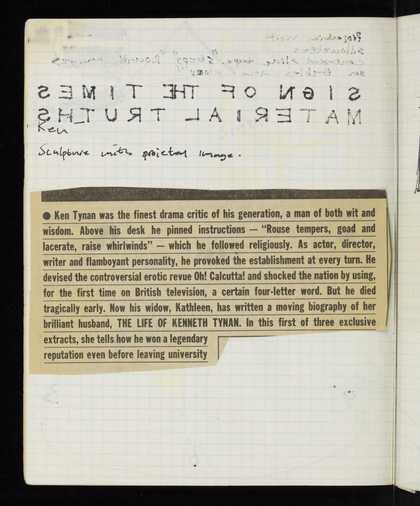 SIGN OF THE TIMES
MATERIAL TRUTHS
Ken
Sculpture with projected image.
● Ken Tynan was the finest drama critic of his generation, a man of both wit and
wisdom. Above his desk he pinned instructions — “Rouse tempers, goad and
lacerate, raise whirlwinds” — which he followed religiously. As actor, director,
writer and flamboyant personality, he provoked the establishment at every turn. He
devised the controversial erotic revue Oh! Calcutta! and shocked the nation by using,
for the first time on British television, a certain four-letter word. But he died
tragically early. Now his widow, Kathleen, has written a moving biography of her
brilliant husband, THE LIFE OF KENNETH TYNAN. In this first of three exclusive
extracts, she tells how he won a legendary
reputation even before leaving university